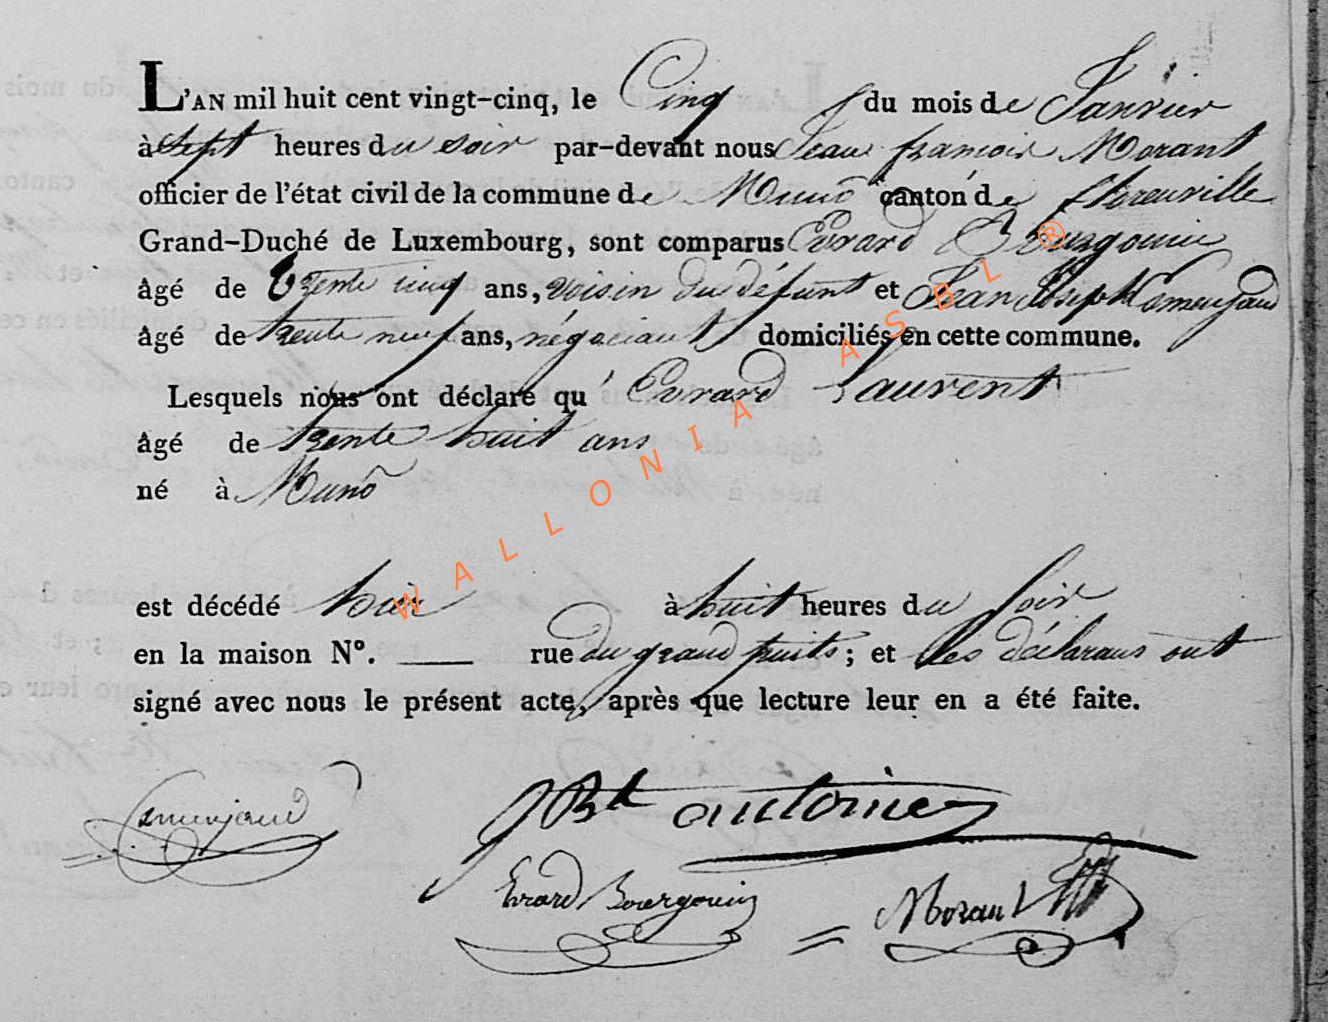 L'AN mil huit cent vingt-cinq, le Cinq du mois de Janvier
à Sept heures du soir par-devant nous Jean françois Morant
officier de l'état civil de la commune de Munô canton de florenville
Grand-Duché de Luxembourg, sont comparus Evrard Bourgouin
âgé de trente cinq ans, voisin du défunt et Jean Joseph
âgé de trente neuf ans, négociant domiciliés en cette commune.
Lesquels nous ont déclaré qu' Evrard Laurent
âgé de trente huit ans
né à Munô
est décédé hier à huit heures du soir
en la maison Nº. rue du grand puits ; et les déclarans ont
signé avec nous le présent acte, après que lecture leur en a été faite.
antoine
Evrard Bourgouin
Morant
WALLONIA ASBL ®